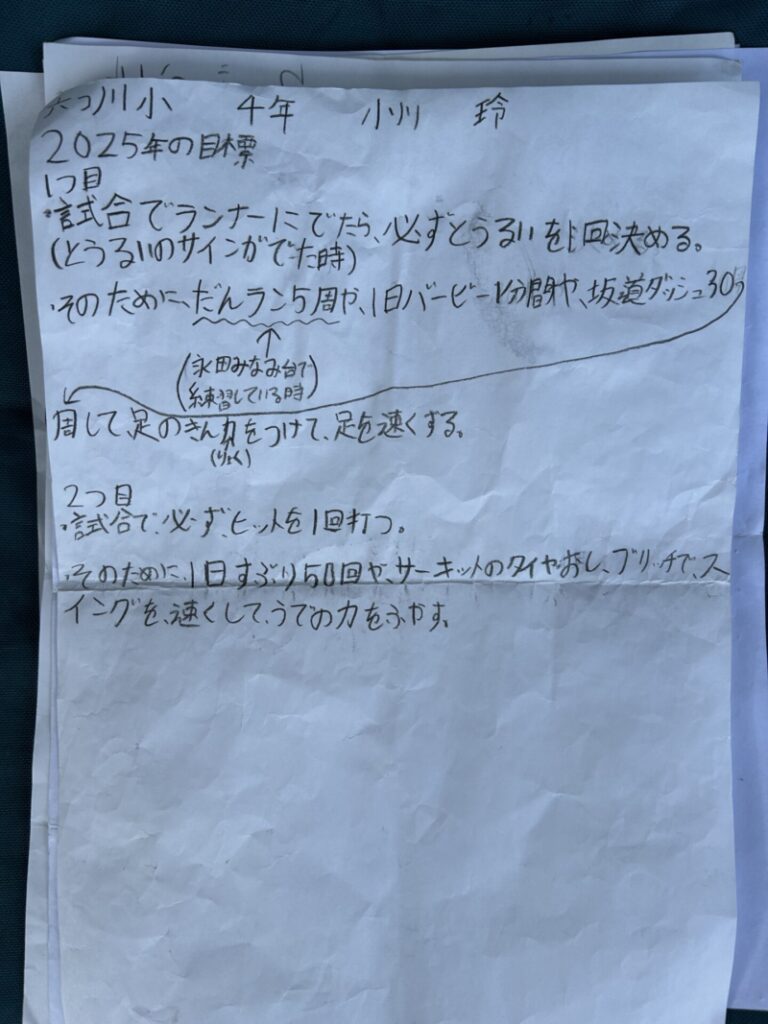 川小 4年 小川 玲
2025年の目標
1つ目
・試合でランナーにでたら、必ずとうるいを1回決める。
(とうるいのサインがでた時)
・そのために、だんラン5周や、1日バービー1分間や、坂道ダッシュ30
(永田みなみ台で
練習している時)
周して、足のきん力をつけて、足を速くする。
(りょく)
2つ目
・試合で、必ず、ヒットを1回打つ。
・そのために、1日すぶり50回や、サーキットのタイヤおし、ブリッヂで、ス
イングを、速くして、うでの力をふやす。